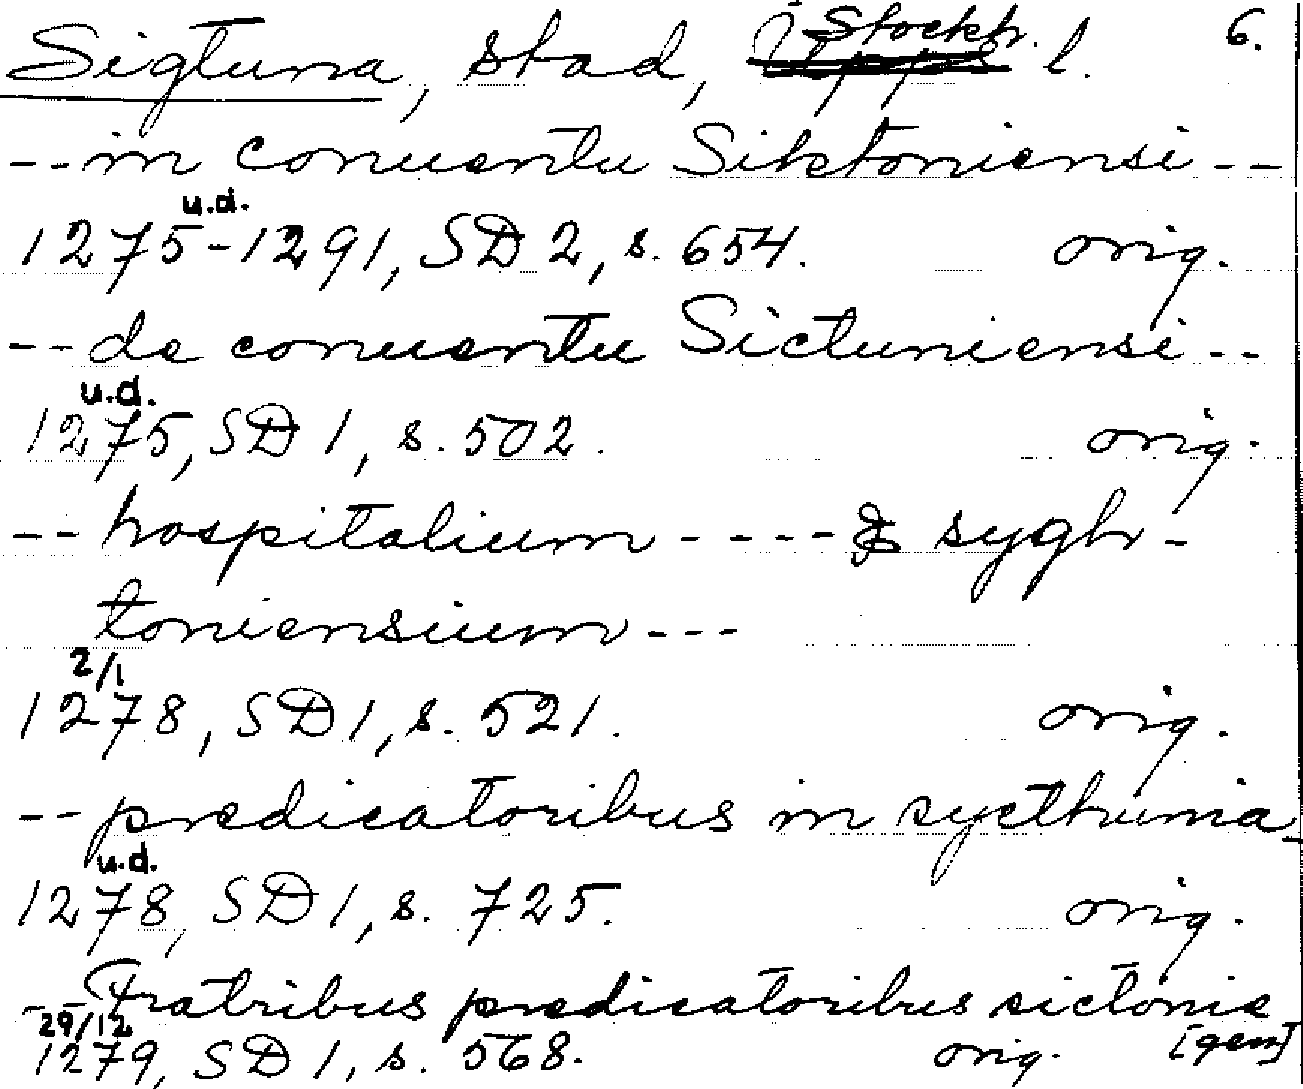 Sigtuna, stad, Stockh. l. 6.
--in conuentu Siktoniensi--
u.d.
1275-1291, SD 2, s. 654. orig.
--de conuentu Sictuniensi--
u.d.
1275, SD 1, s. 502. orig.
--hospitalium ----& sygh-
toniensium---
2/1
1278, SD 1, s. 521. orig.
--predicatoribus in sycthunia
u.d.
1278, SD 1, s. 725. orig.
--Fratribus predicatoribus sictonie
29/12 [gen]
1279, SD 1, s. 568. orig.